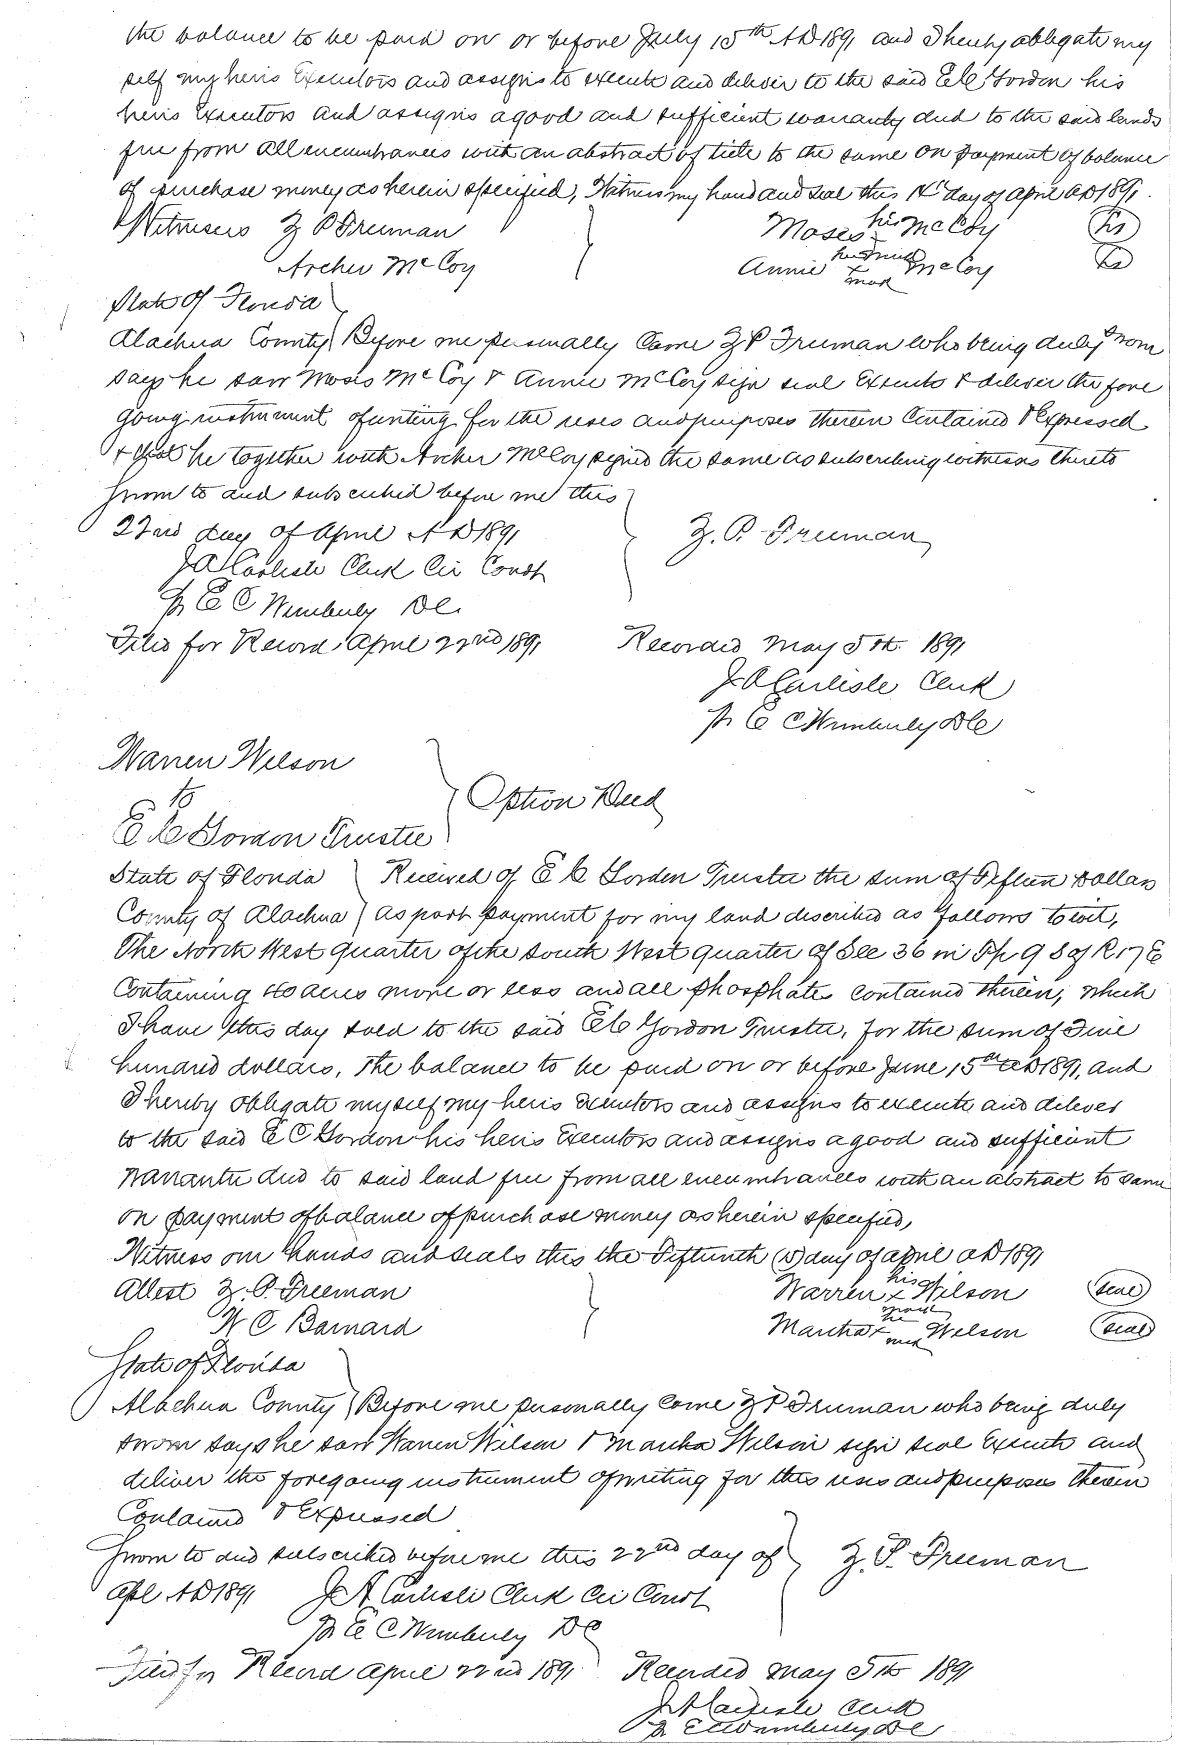 the balance to be paid on or before July 15th AD 1891 and I hereby obligate my
self my heirs Executors and assigns to execute and deliver to the said E C Gordon his
heirs Executors and assigns a good and sufficient warranty deed to the said lands
free from all encumbrances with an abstract of title to the same on payment of balance
of purchase money as herein specified, Witness my hand and seal this day of April AD 1891.
Witnesses Z P Freeman Moses his McCoy
Archer McCoy Annie mark McCoy
State of Florida
Alachua County Before me personally came Z P Freeman who being duly sworn
says he saw Moses McCoy & Annie McCoy sign seal Execute & deliver the fore
going instrument of writing for the uses and purposes therein Contained & Expressed
& that he together with Archer McCoy signed the same as subscribing witnesses thereto
Sworn to and subscribed before me this
22nd day of April AD 1891 Z. P. Freeman
J A Carlisle Clerk Cir Court
pr E C Wimberly DC.
Filed for Record April 22nd 1891 Recorded May 5th 1891
J A Carlisle Clerk
pr E C Wimberly DC
Warren Wilson
to Option Deed
E C Gordon Trustee
State of Florida Received of E C Gordon Trustee the sum of Fifteen Dollars
County of Alachua as part payment for my land described as follows towit,
The North West quarter of the South West quarter of Sec 36 in Tp 9 S of R 17 E
Containing 40 acres more or less and all phosphate contained therein, which
I have this day sold to the said E C Gordon Trustee, for the sum of Five
hundred dollars, The balance to be paid on or before June 15th AD 1891, and
I hereby obligate myself my heirs Executors and assigns to execute and deliver
to the said E C Gordon his heirs Executors and assigns a good and sufficient
warrantee deed to said land free from all encumbrances with an abstract to same
on payment of balance of purchase money as herein specified,
Witness our hands and seals this the Fifteenth (15) day of April AD 1891
Attest Z. P. Freeman Warren his x mark Wilson (seal)
W C Barnard Martha her x mark Wilson (seal)
State of Florida
Alachua County Before me personally came Z P Freeman who being duly
sworn says he saw Warren Wilson & Martha Wilson sign seal Execute and
deliver the foregoing instrument of writing for the uses and purposes therein
Contained & Expressed
Sworn to and subscribed before me this 22nd day of Z. P. Freeman
Apl AD 1891 J A Carlisle Clerk Cir Court
pr E C Wimberly DC
Filed for Record April 22nd 1891 Recorded May 5th 1891
J A Carlisle Clerk
pr E C Wimberly DC